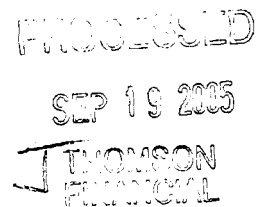 PROCESSED
SEP 19 2005
THOMSON
FINANCIAL